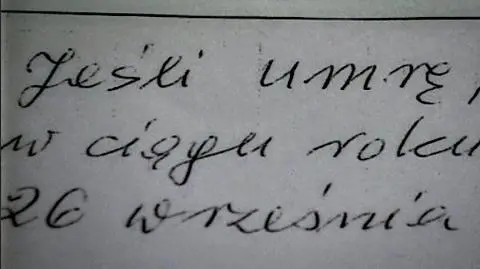 Jeśli umrę,
w ciągu roku
26 września